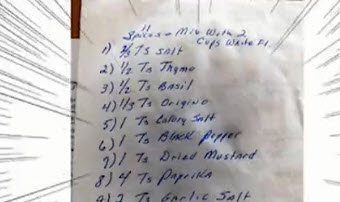 11
Spices - Mix With 2
Cups White Fl.
1) 2/3 Ts Salt
2) 1/2 Ts Thyme
3) 1/2 Ts Basil
4) 1/3 Ts Origino
5) 1 Ts Celery Salt
6) 1 Ts Black Pepper
7) 1 Ts Dried Mustard
8) 4 Ts Paprika
9) 2 Ts Garlic Salt